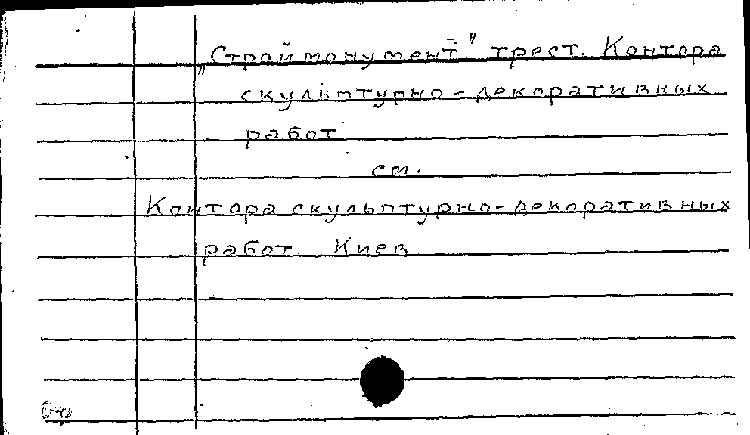 „Строймонумент" трест. Контора
скульптурно-декоративных
работ
см.
Контора скульптурно-декоративных
работ Киев